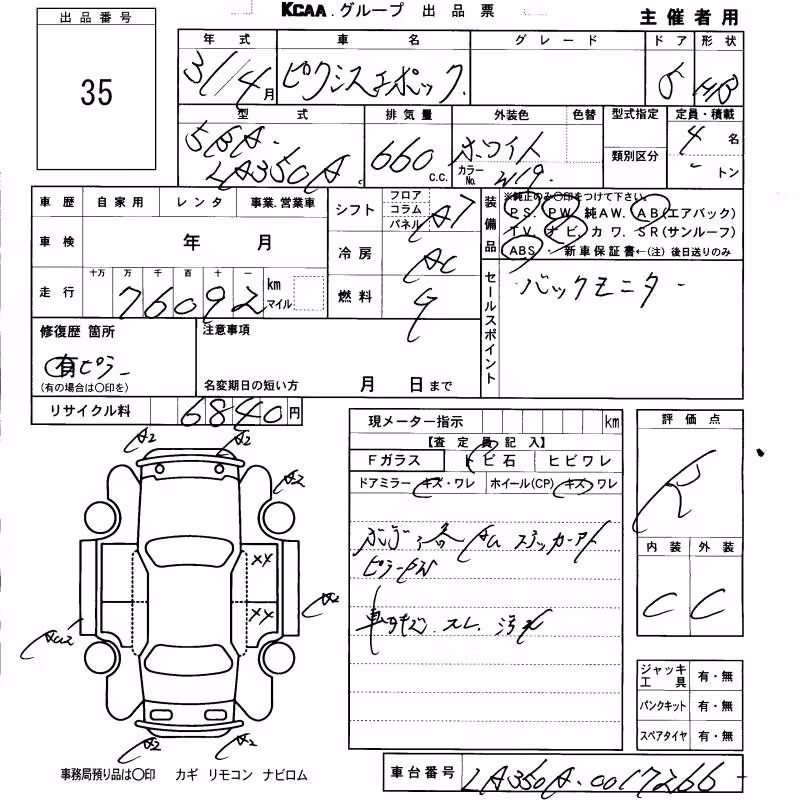 KCAA.グループ 出品票
主催者用
出品番号
35
年式 車名 グレード ドア 形状
31/4月 ピクシスエポック. 5 HB
型式 排気量 外装色 色替 型式指定 定員・積載
5BA- 660 c.c. ホワイト 4名
LA350A カラーNo. W19. 類別区分 トン
車歴 自家用 レンタ 事業.営業車
シフト フロア コラム パネル A7
装備品 ※純正のみ○印をつけて下さい。
PS. PW. 純AW. AB(エアバック)
TV. ナビ. カワ. SR(サンルーフ)
ABS・新車保証書←(注) 後日送りのみ
車検 年 月
冷房 AC
走行 十万 万 千 百 十 一 km マイル
76092
燃料 G
セールスポイント
バックモニター
修復歴 箇所
有 ピラー
(有の場合は○印を)
注意事項
名変期日の短い方 月 日まで
リサイクル料 6840円
現メーター指示 km
【査定員記入】
Fガラス トビ石 ヒビワレ
ドアミラー キズ・ワレ ホイール(CP) キズ・ワレ
ピラーPW
スレ. 汚れ
評価点
R
内装 外装
C C
A2
A2
XX
XX
A2
AU2
A2 A2
ジャッキ工具 有・無
パンクキット 有・無
スペアタイヤ 有・無
事務局預り品は○印 カギ リモコン ナビロム
車台番号 LA350A-0017266